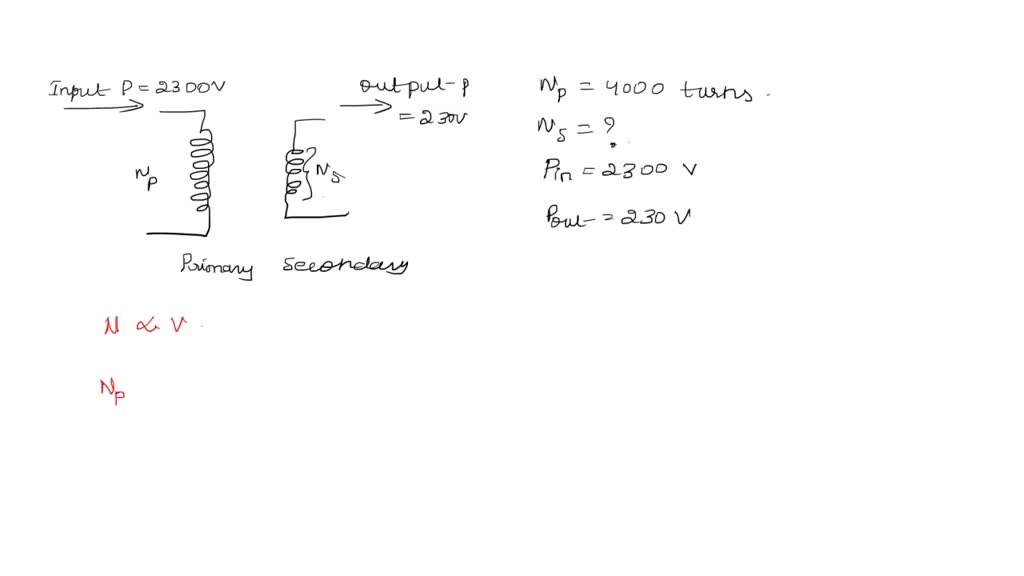 Input P = 2300V
Output-P
= 230V
Np
Ns
Primary Secondary
Np = 4000 turns.
Ns = ?
Pin = 2300 V
Pout = 230 V
N ∝ V
Np